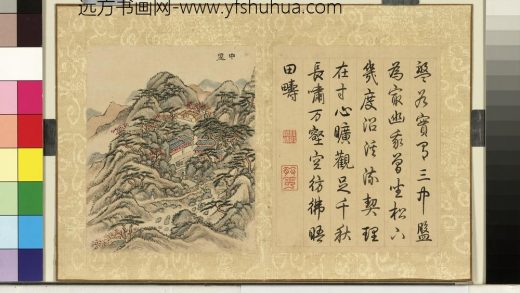 远方书画网-www.yfshuhua.com
中盤
盤名實有三中盤
為最幽我曾坐松下
幾度沿溪流契理
在寸心曠觀足千秋
長嘯万壑空彷彿晤
田疇